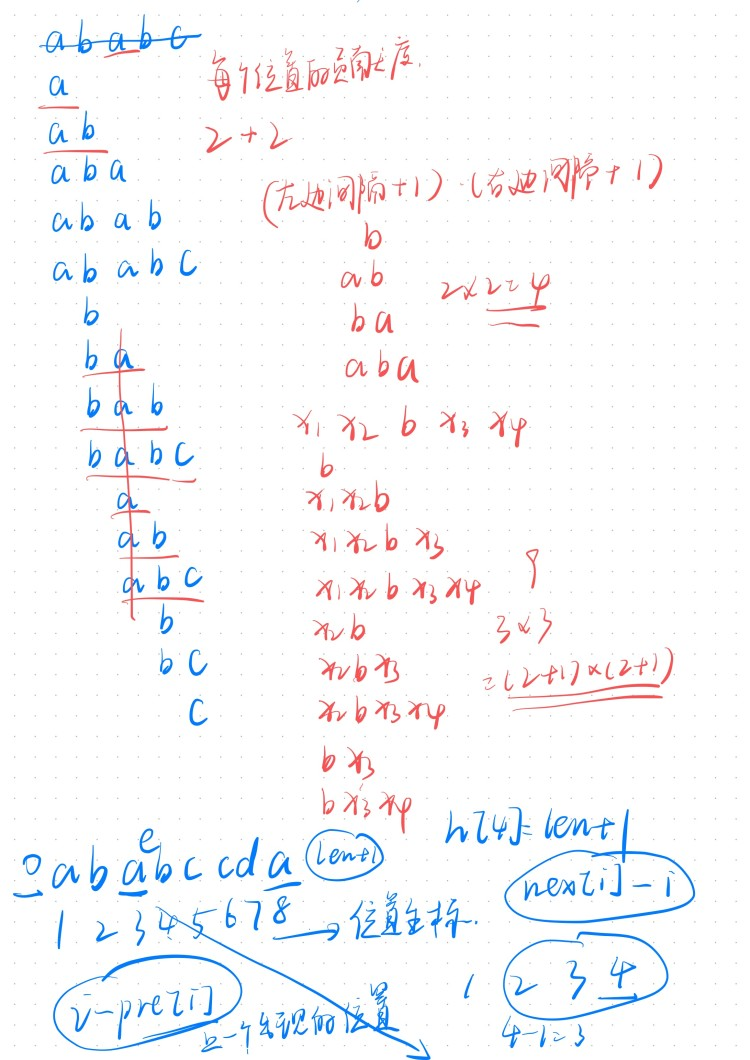 ababc
a
ab
aba
abab
ababc
b
ba
bab
babc
a
ab
abc
b
bc
c
每个位置的贡献度.
2+2
(左边间隔+1)·(右边间隔+1)
b
ab
ba
aba
2×2=4
x1 x2 b x3 x4
b
x1x2b
x1x2bx3
x1x2bx3x4
x2b
x2bx3
x2bx3x4
bx3
bx3x4
9
3×3
=(2+1)×(2+1)
e
0 ababccda len+1
12345678 → 位置坐标.
i-pre[i]
上一个出现的位置
n[4]=len+1
next[i]-i
1 2 3 4
4-1=3